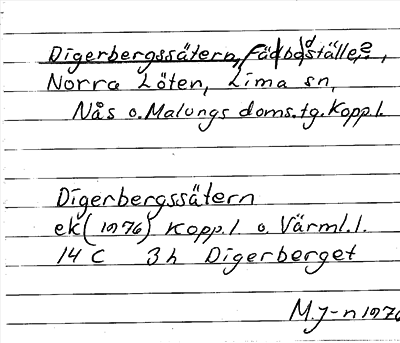 Digerbergssätern, Fädbodställe,
Norra Löten, Lima sn,
Nås o. Malungs doms.tg. Kopp.l.
Digerbergssätern
ek (1976) Kopp.l o. Värml.l.
14 C 3 h Digerberget
M.J-n 1976